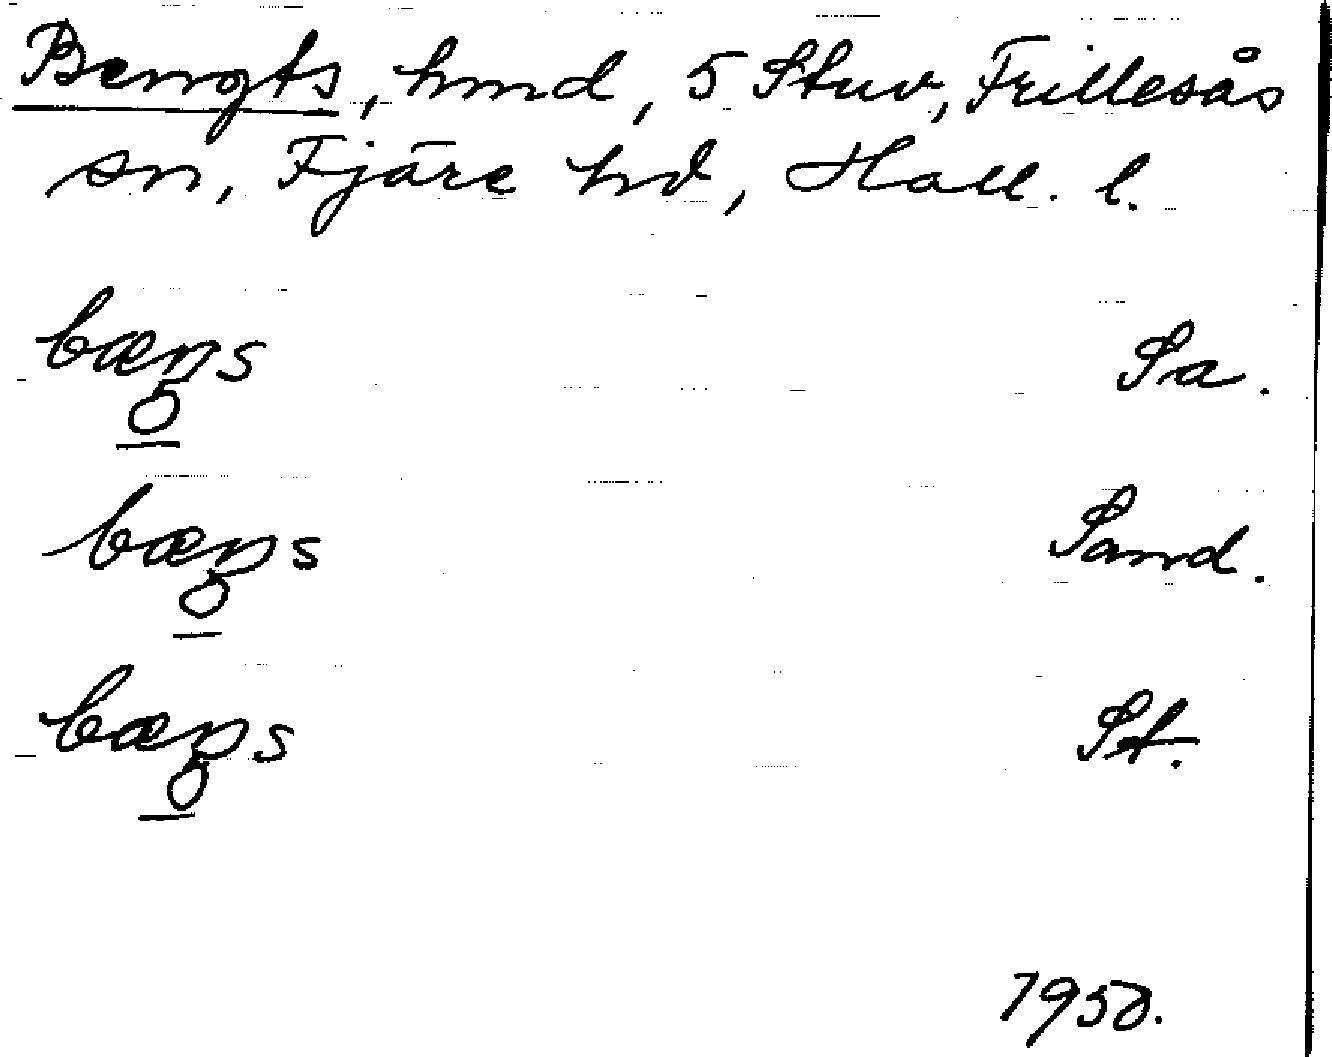 Bengts, hmd, 5 Stuv, Frillesås
sn, Fjäre hd, Hall. l.
bæŋs
Sa.
bæŋs
Sand.
bæŋs
St.
1950.